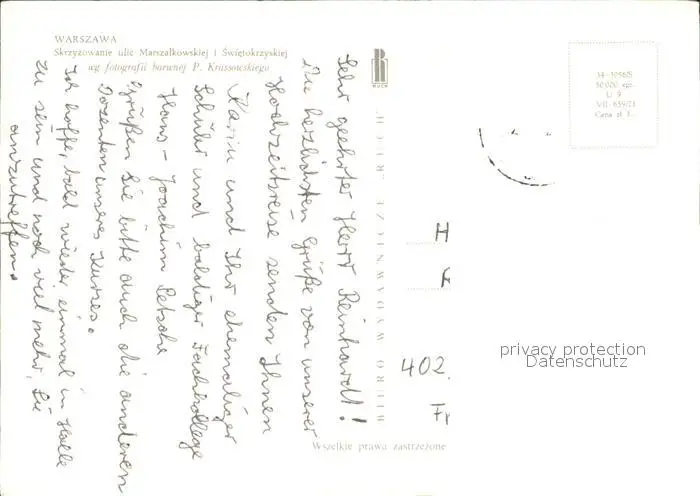 WARSZAWA
Skrzyżowanie ulic Marszałkowskiej i Świętokrzyskiej
wg fotografii barwnej P. Krassowskiego
RUCH
BIURO WYDAWNICZE „RUCH"
Wszelkie prawa zastrzeżone
U 9
Cena zł 1,-
Sehr geehrter Herr Reinhardt!
Die herzlichsten Grüße von unserer
Hochzeitsreise senden Ihnen
Karin und Ihr ehemaliger
Schüler und baldiger Fachkollege
Hans-Joachim Letsche
Grüßen Sie bitte auch die anderen
Dozenten unseres Kurses.
Ich hoffe, bald wieder einmal in Halle
zu sein und noch viel mehr, Sie
anzutreffen.
H
402.
Fr
privacy protection
Datenschutz